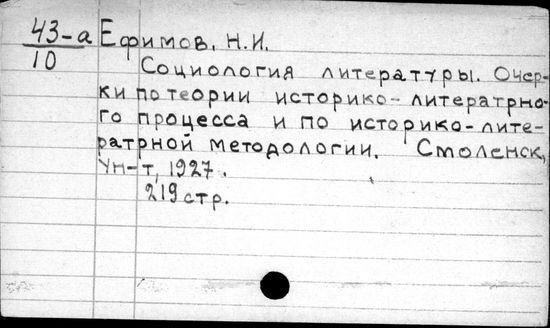 43-а Ефимов, Н.И.
10
Социология литературы. Очер-
ки по теории историко-литератрно-
го процесса и по историко-лите-
ратрной методологии. Смоленск,
Ун-т, 1927.
219 стр.